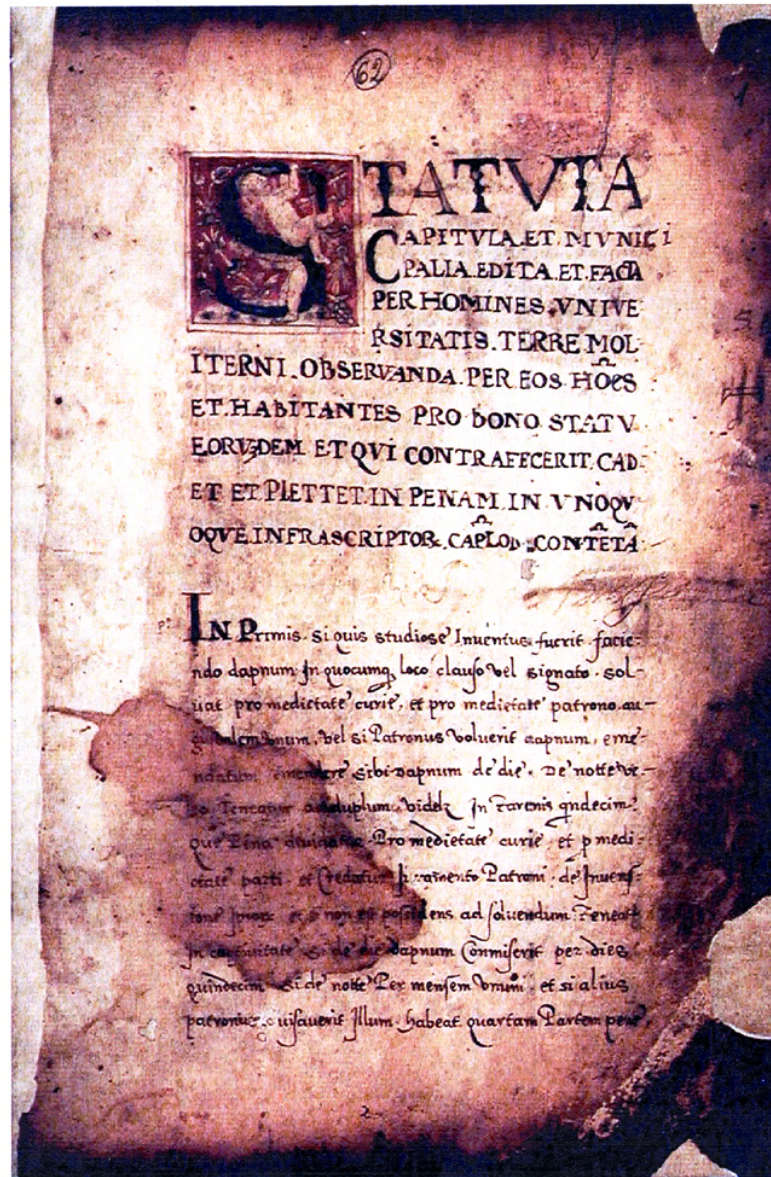 62
STATVTA
CAPITVLA.ET.MVNICI
PALIA.EDITA.ET.FACTA
PER HOMINES.VNIVE-
RSITATIS.TERRE MOL-
ITERNI.OBSERVANDA.PER EOS HOES
ET.HABITANTES PRO BONO STATV
EORVNDEM ET QVI CONTRAFECERIT CAD-
ET ET PLETTET.IN PENAM.IN VNOQV
OQVE.INFRASCRIPTOR CAPLO CONTETA
IN Primis. si quis studiose Inventus fuerit facie-
ndo dapnum In quocumq loco clauso vel signato. sol-
uat pro medietate curie, et pro medietate patrono au-
vel si Patronus voluerit dapnum, eme-
sibi dapnum de die. De notte ve-
duplum, videlz In tarenis qndecim
que Pena Pro medietate curie et p medi-
etate parti. et Credatur Iuramento Patroni de Inven-
tione et si non est possidens ad solvendum Teneat
In captivitate si de die dapnum Conmiserit per dies
quindecim si de notte Per mensem unum et si alius
patronus Illum habeat quartam Partem pene